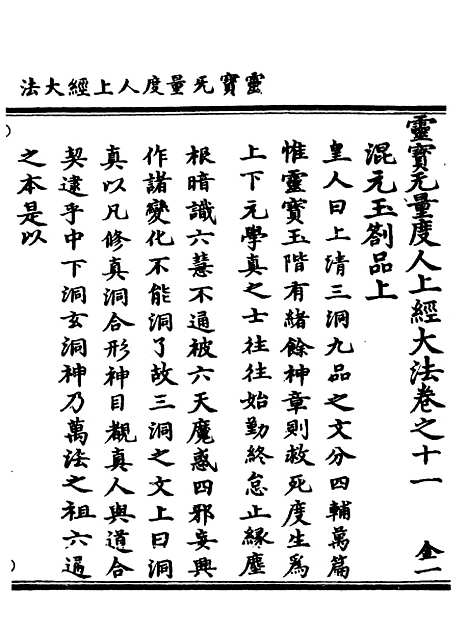 靈寶无量度人上經大法
靈寶无量度人上經大法卷之十一 金一
混元玉劄品上
皇人曰上清三洞九品之文分四輔萬篇
惟靈寶玉階有緒餘神章則救死度生為
上下元學真之士往往始勤終怠正緣塵
根暗識六慧不通被六天魔惑四邪妄興
作諸變化不能洞了故三洞之文上曰洞
真以凡修真洞合形神目覩真人與道合
契逮乎中下洞玄洞神乃萬法之祖六通
之本是以